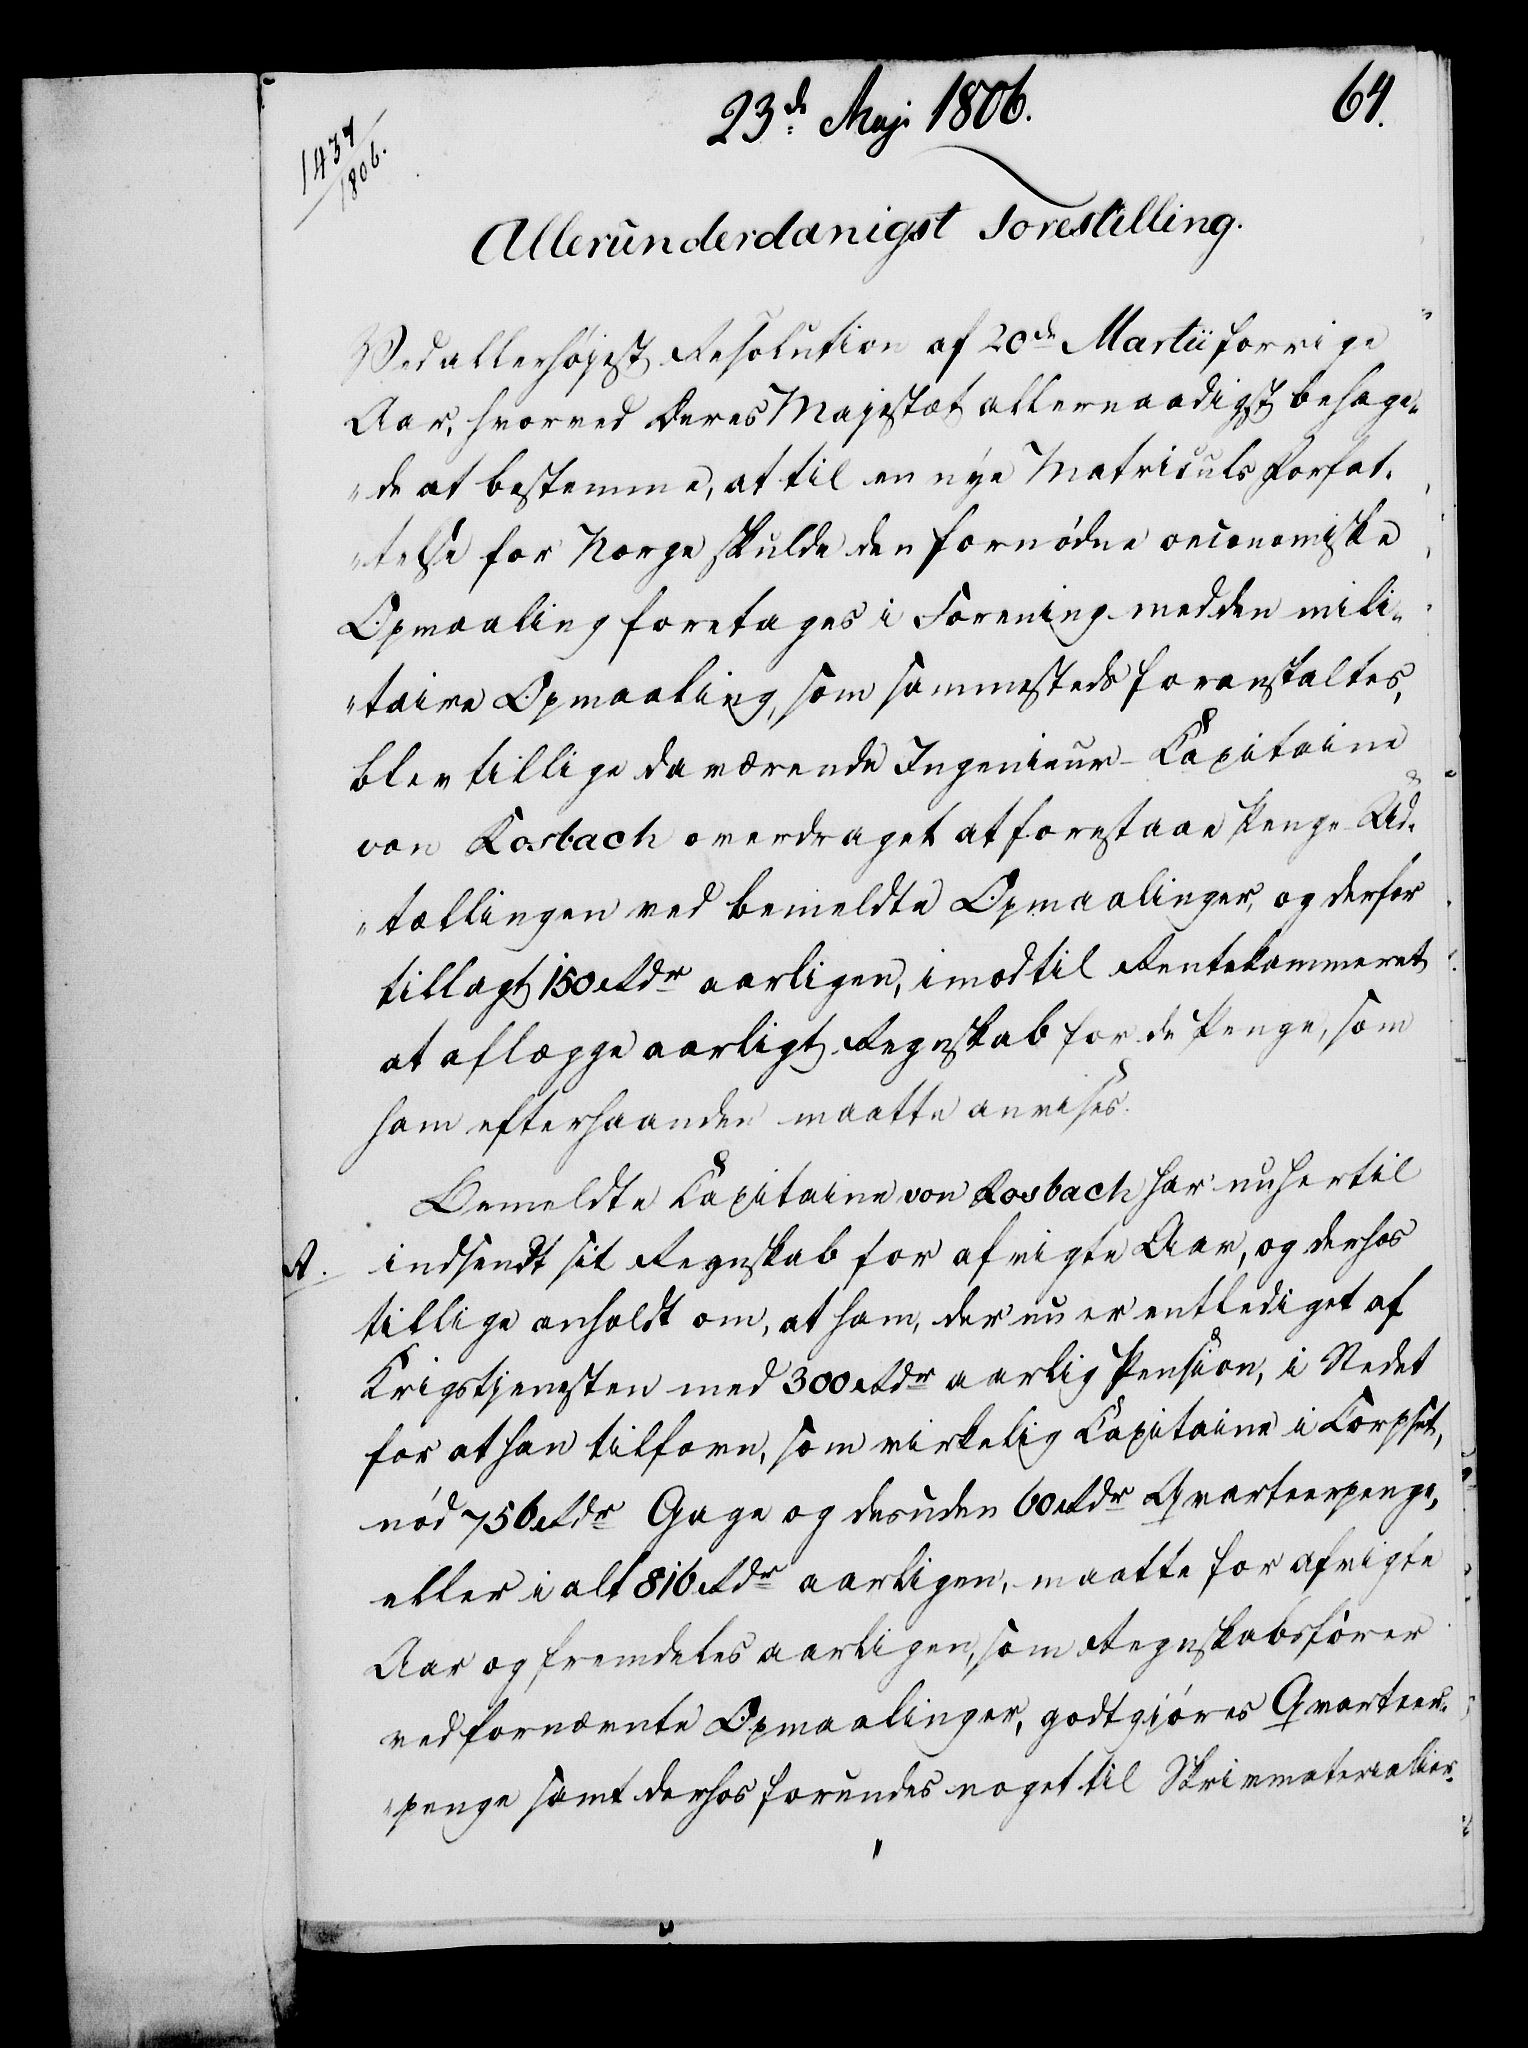 23de Maji 1806.
64.
1437
1806.
Allerunderdanigst Forestilling.
Ved allerhøjest Resolution af 20de Martii forrige
Aar, hvorved Deres Majestæt allernaadigst behage-
"de at bestemme, at til en nye Matriculs Forfat-
"telse for Norge skulde den fornødne oeconomiske
Opmaaling foretages i Forening med den mili-
"taire Opmaaling, som sammesteds foranstaltes,
blev tillige daværende Ingenieur-Capitaine
von Rosbach overdraget at forestaae Penge-Ud-
"tællingen ved bemeldte Opmaalinger, og derfor
tillagt 150 Rdr aarligen, imod til Rentekammeret
at aflægge aarligt Regnskab for de Penge, som
ham efterhaanden maatte anvises.
Bemeldte Capitaine von Rosbach har nu hertil
A. indsendt sit Regnskab for afvigte Aar, og derhos
tillige anholdt om, at ham, der nu er entlediget af
Krigstjenesten med 300 Rdr aarlig Pension, i Stedet
for at han tilforn, som virkelig Capitaine i Corpset,
nød 756 Rdr Gage og desuden 60 Rdr Qvarteerpenge,
eller i alt 816 Rdr aarligen, maatte for afvigte
Aar og fremdeles aarligen, som Regnskabsfører
ved fornævnte Opmaalinger, godtgjøres Qvarteer-
"penge samt derhos forundes noget til Skrivmaterialier.